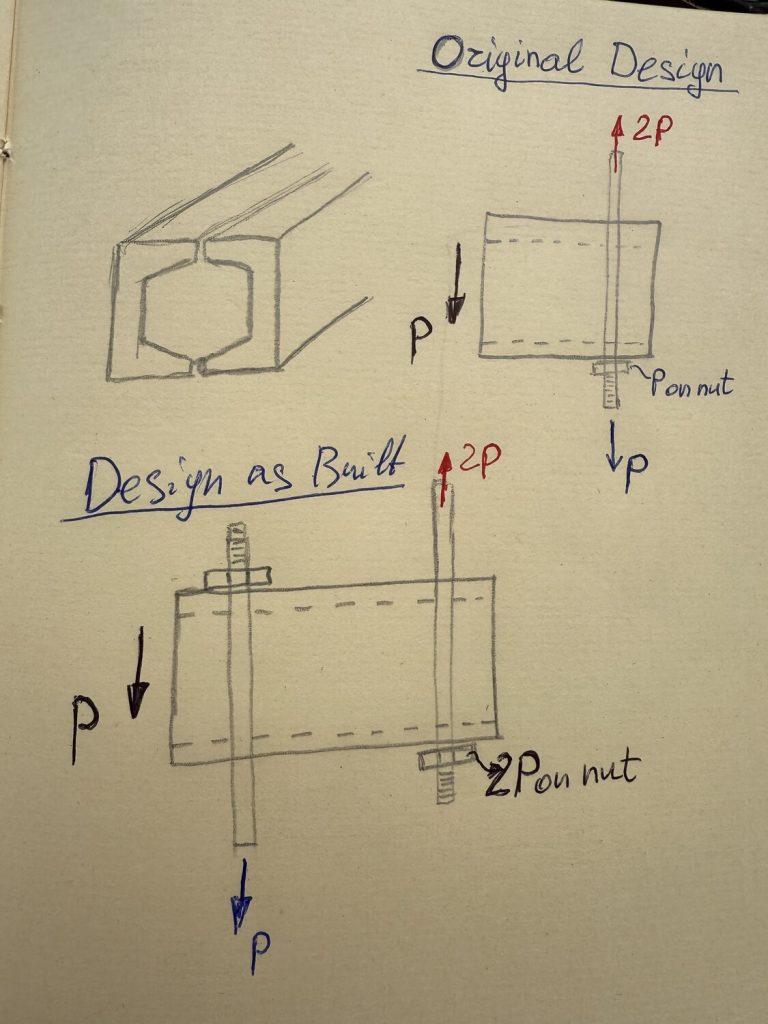 Original Design
2P
P
P on nut
P
Design as Built
2P
P
2P on nut
P